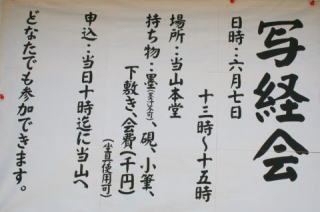 写経会
日時…六月七日
十三時〜十五時
場所…当山本堂
持ち物…墨(墨汁不可)、硯、小筆、
下敷き、会費(千円)
(半紙使用可)
申込…当日十時迄に当山へ
どなたでも参加できます。